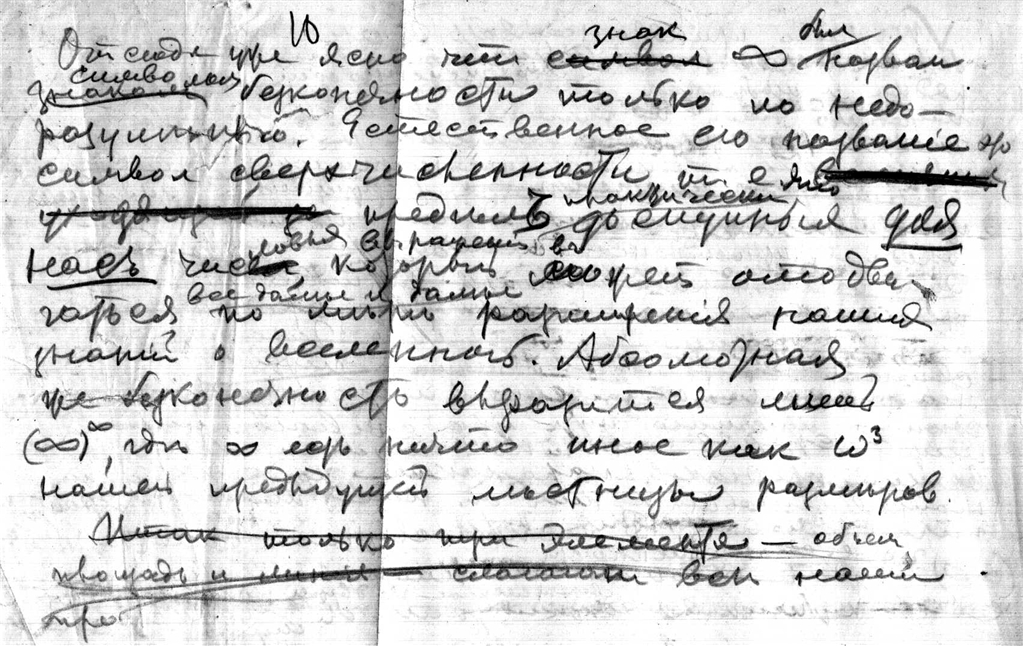 10
Отсюда уже ясно что знак ∞ был назван
символом безконечности только по недо-
разуменію. Естественное его названіе это
символ сверхчисленности т е
пределъ практически доступныя для
насъ числовыя выраженія, который может отодви-
гаться все далее и далее по мъръ расширения наших
знаний о вселенной. Абсолютная
же безконечность выразится лишь
(∞)^∞, где ∞ есть ничто иное как ω³
нашей предъидущей лъстницы размъров.
Итак только три элемента — объем,
площадь и линия — слагают все наши
про